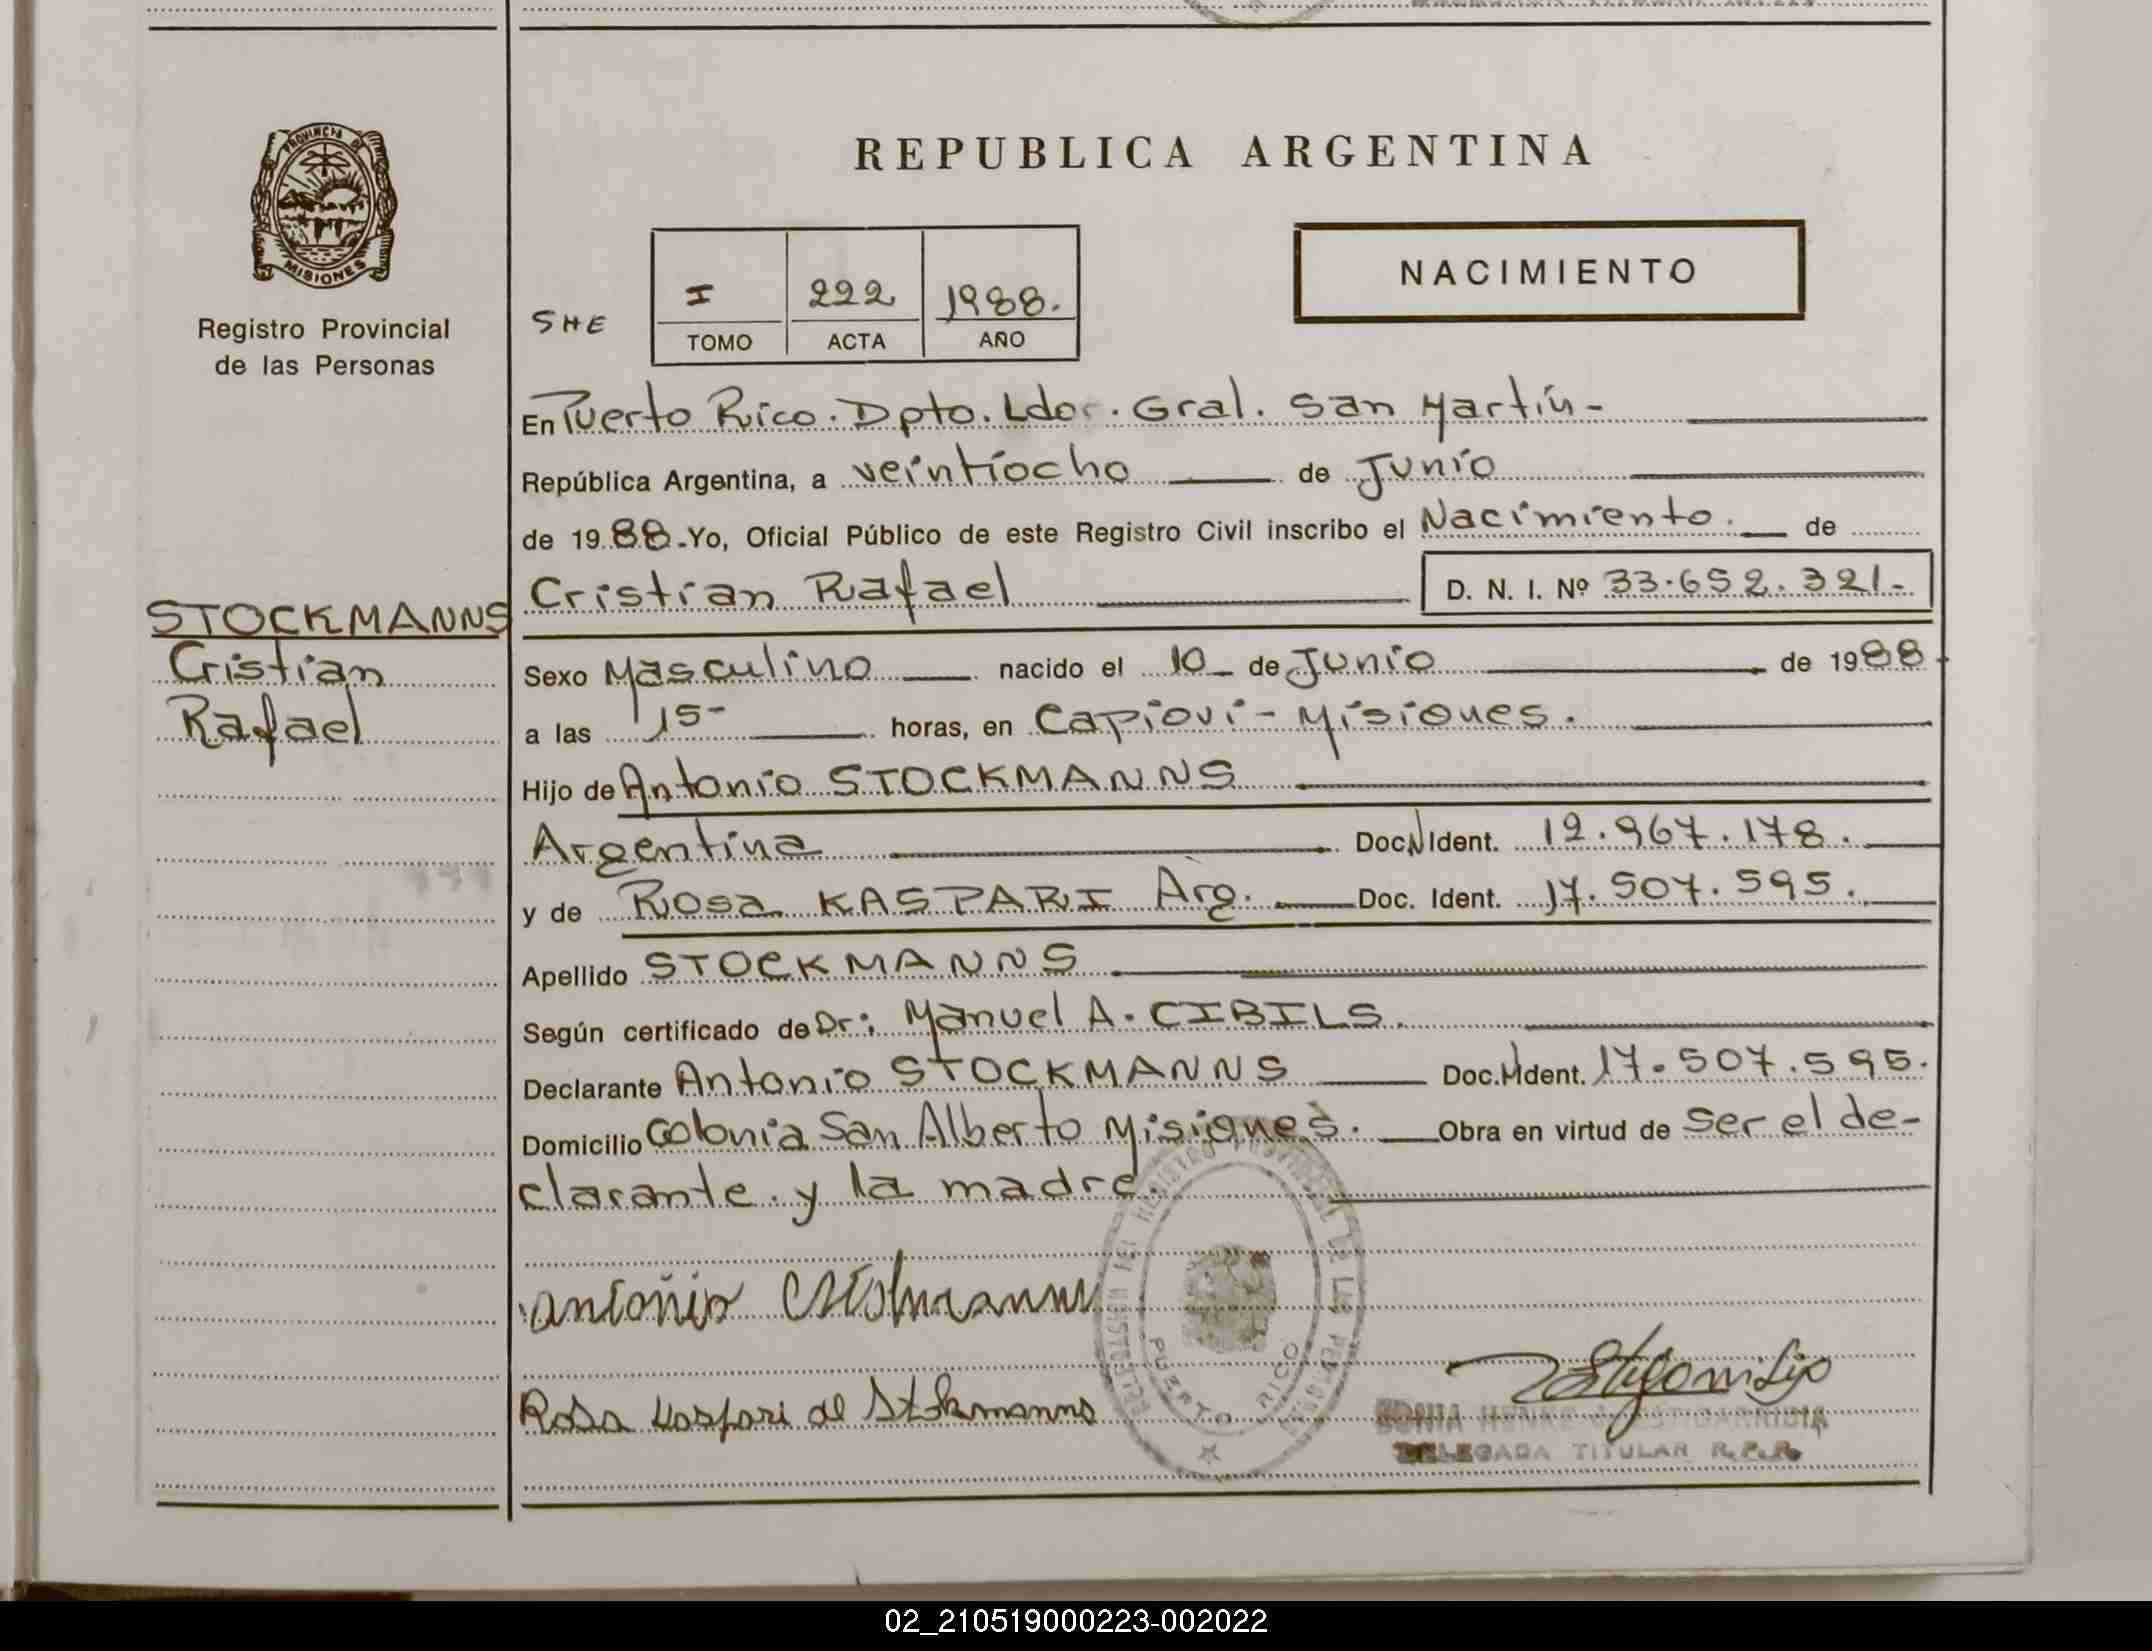 PROVINCIA DE
MISIONES
Registro Provincial
de las Personas
STOCKMANNS
Cristian
Rafael
REPUBLICA ARGENTINA
NACIMIENTO
SHE
I 222 1988.
TOMO ACTA AÑO
En Puerto Rico. Dpto. Ldor. Gral. San Martín-
República Argentina, a veintiocho de Junio
de 1988-Yo, Oficial Público de este Registro Civil inscribo el Nacimiento. de
Cristian Rafael D. N. I. Nº 33.652.321-
Sexo Masculino nacido el 10 de Junio de 1988
a las 15- horas, en Capioví - Misiones.
Hijo de Antonio STOCKMANNS
Argentina Doc.N Ident. 12.967.178.
y de Rosa KASPARI Arg. Doc. Ident. 17.507.595.
Apellido STOCKMANNS
Según certificado de Dr: Manuel A. CIBILS.
Declarante Antonio STOCKMANNS Doc.N Ident. 17.507.595.
Domicilio Colonia San Alberto Misiones. Obra en virtud de ser el de-
clarante y la madre.
REGISTRO PROVINCIAL DE LAS PERSONAS
PUERTO RICO
Rosa Kaspari de Stokmanns
SONIA HENKE
DELEGADA TITULAR R.P.P.
02_210519000223-002022